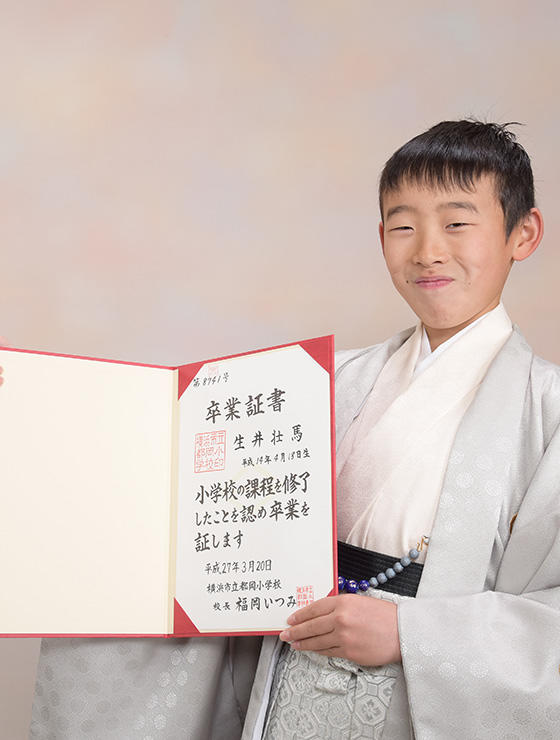 第8741号
卒業証書
生井壮馬
平成14年4月18日生
小学校の課程を修了
したことを認め卒業を
証します
平成27年3月20日
横浜市立都岡小学校
校長 福岡いつみ